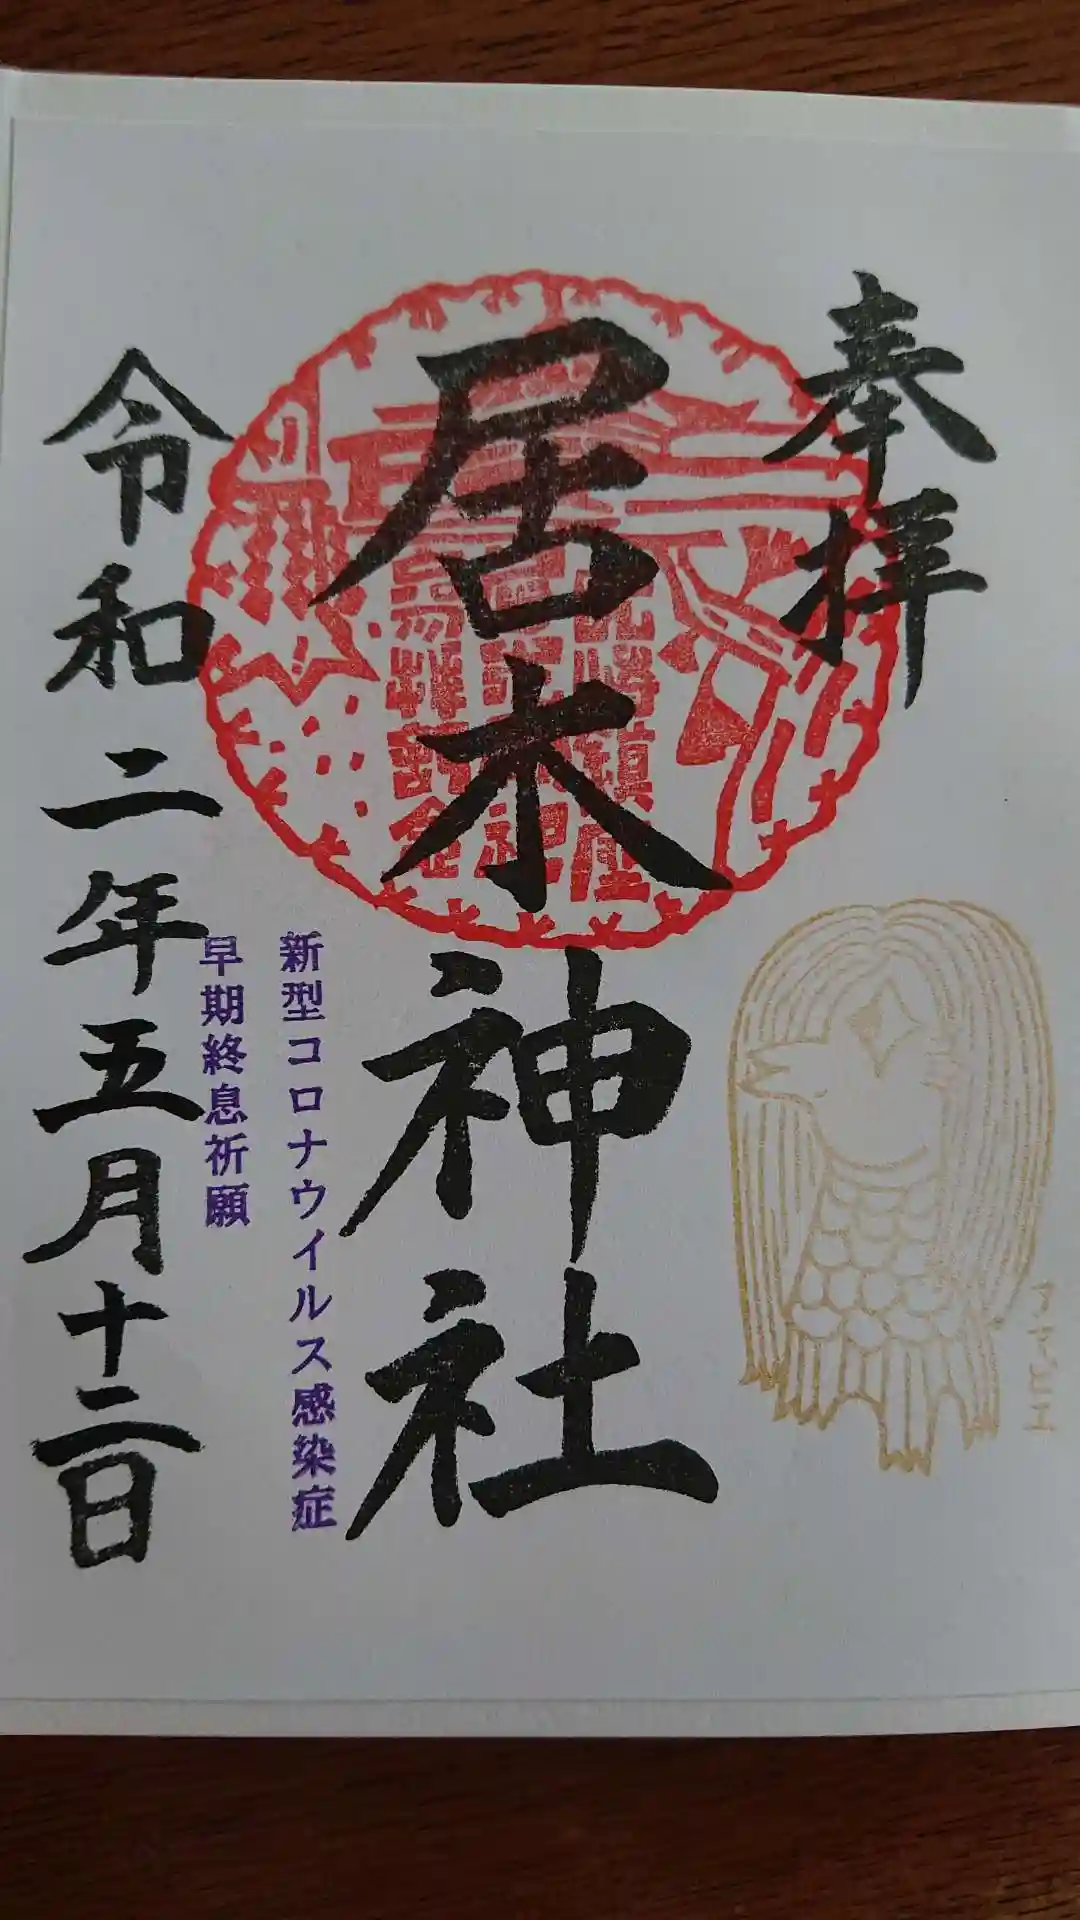 奉拝
居木神社
新型コロナウイルス感染症
早期終息祈願
令和二年五月十二日
アマビエ